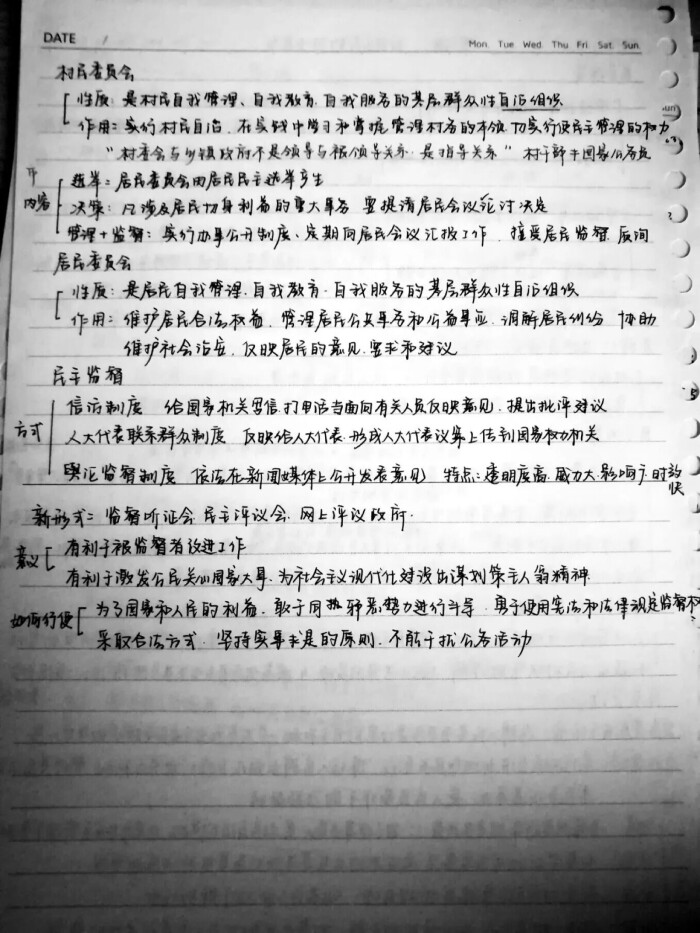 DATE
Mon. Tue. Wed. Thu. Fri. Sat. Sun.
村民委员会
性质：是村民自我管理、自我教育、自我服务的基层群众性自治组织
作用：实行村民自治，在实践中学习和掌握管理村务的本领 切实行使民主管理的权力
“村委会与乡镇政府不是领导与被领导关系，是指导关系” 村干部≠国家公务员
内容
选举：居民委员会由居民民主选举产生
决策：凡涉及居民切身利益的重大事务 要提请居民会议讨论决定
管理+监督：实行办事公开制度、定期向居民会议汇报工作，接受居民监督、质询
居民委员会
性质：是居民自我管理、自我教育、自我服务的基层群众性自治组织
作用：维护居民合法权益，管理居民公共事务和公益事业，调解居民纠纷 协助
维护社会治安，反映居民的意见、要求和建议
民主监督
方式
信访制度 给国家机关写信、打电话当面向有关人员反映意见，提出批评建议
人大代表联系群众制度 反映给人大代表，形成人大代表议案上传到国家权力机关
舆论监督制度 依法在新闻媒体上公开发表意见 特点：透明度高、威力大、影响广、时效
快
新形式：监督听证会、民主评议会、网上评议政府.
意义
有利于被监督者改进工作
有利于激发公民关心国家大事，为社会主义现代化建设出谋划策主人翁精神
如何行使
为了国家和人民的利益，敢于同 邪恶势力进行斗争，勇于使用宪法和法律规定监督权
采取合法方式，坚持实事求是的原则，不能干扰公务活动